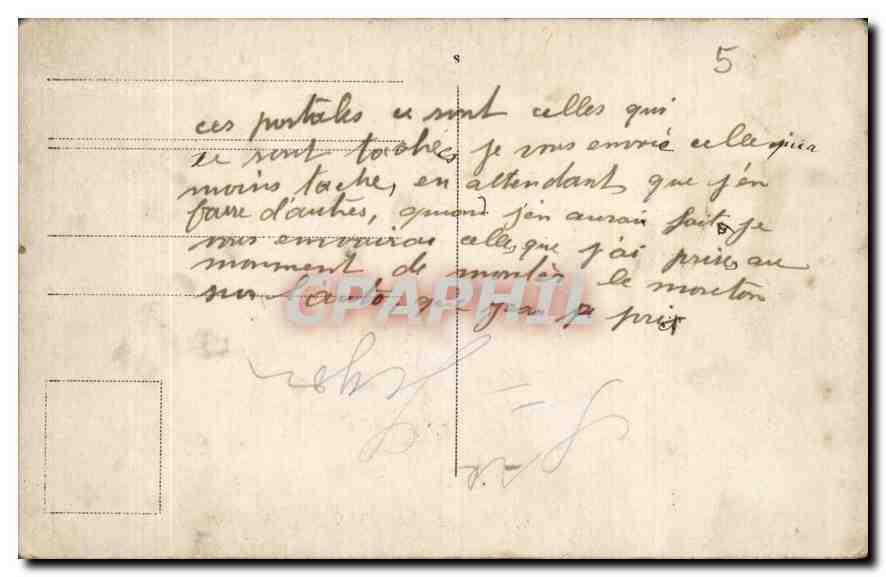 5
ces postales ce sont celles qui
se sont tachés, je vous envoie celle qui a
moins tache, en attendant que j'en
fasse d'autres, quand j'en aurai fait, je
vous envoirai celle, que j'ai prise, au
momment de montés le mouton
sur l'auto, que
CPAPHIL